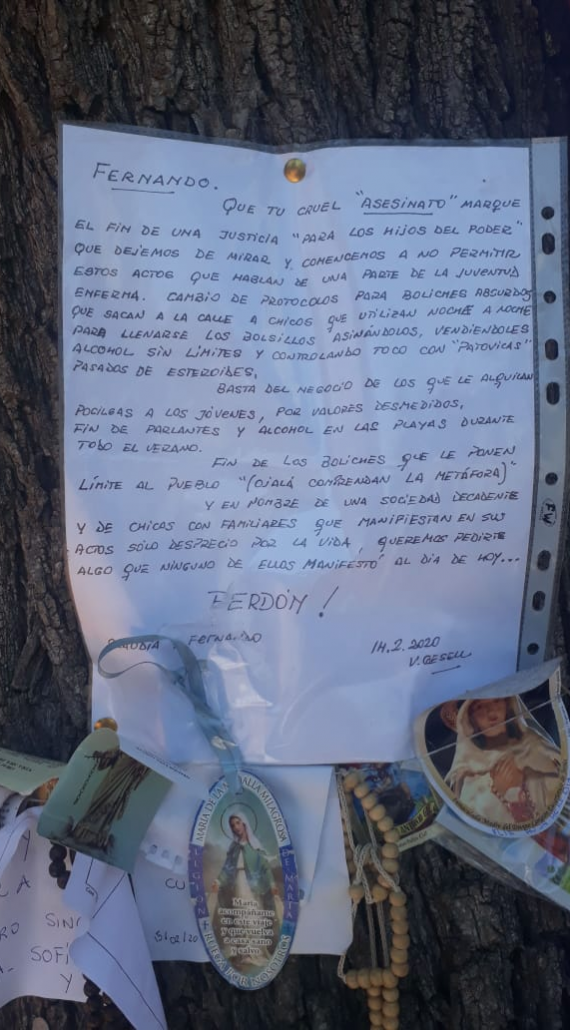 FERNANDO.
QUE TU CRUEL "ASESINATO" MARQUE
EL FIN DE UNA JUSTICIA "PARA LOS HIJOS DEL PODER"
QUE DEJEMOS DE MIRAR Y COMENCEMOS A NO PERMITIR
ESTOS ACTOS QUE HABLAN DE UNA PARTE DE LA JUVENTUD
ENFERMA. CAMBIO DE PROTOCOLOS PARA BOLICHES ABSURDOS
QUE SACAN A LA CALLE A CHICOS QUE UTILIZAN NOCHE A NOCHE
PARA LLENARSE LOS BOLSILLOS ASINÁNDOLOS, VENDIENDOLES
ALCOHOL SIN LÍMITES Y CONTROLANDO TODO CON "PATOVICAS"
PASADOS DE ESTEROIDES.
BASTA DEL NEGOCIO DE LOS QUE LE ALQUILAN
POCILGAS A LOS JÓVENES, POR VALORES DESMEDIDOS,
FIN DE PARLANTES Y ALCOHOL EN LAS PLAYAS DURANTE
TODO EL VERANO.
FIN DE LOS BOLICHES QUE LE PONEN
LÍMITE AL PUEBLO "(OJALÁ COMPRENDAN LA METÁFORA)"
Y EN NOMBRE DE UNA SOCIEDAD DECADENTE
Y DE CHICOS CON FAMILIARES QUE MANIFIESTAN EN SUS
ACTOS SÓLO DESPRECIO POR LA VIDA, QUEREMOS PEDIRTE
ALGO QUE NINGUNO DE ELLOS MANIFESTÓ AL DÍA DE HOY...
PERDÓN!
FERNANDO
14.2.2020
V. GESELL
FW
MARIA DE LA MEDALLA MILAGROSA
María
acompáñame
en este viaje
y que vuelva
a casa sano
y salvo
RUEGA POR NOSOTROS
CU
SOFÍ
Y